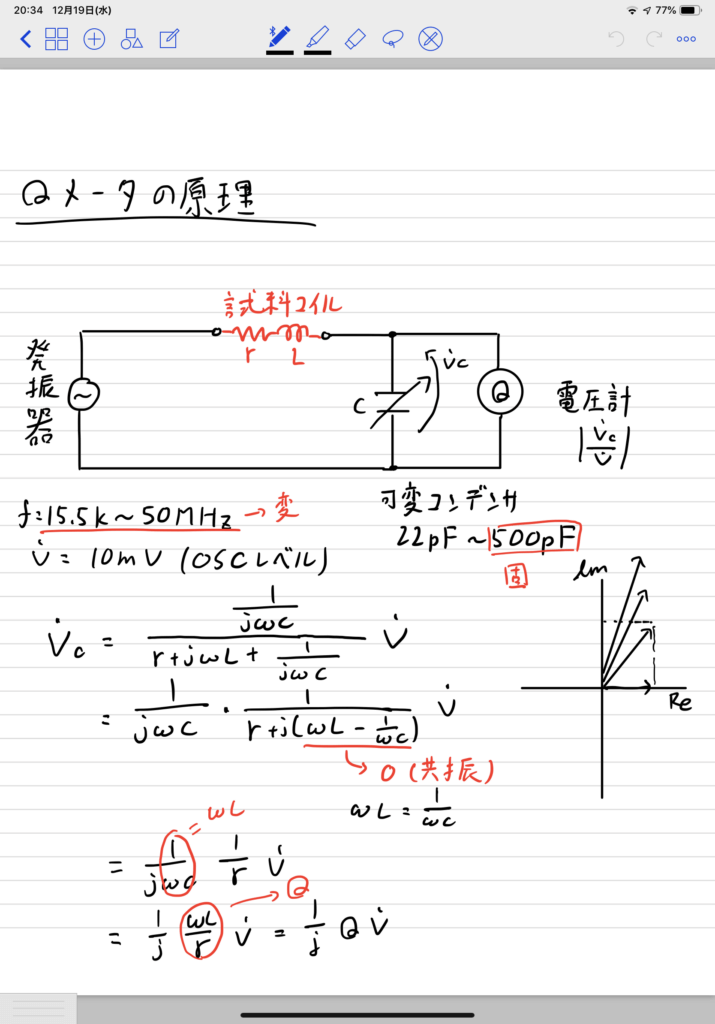 20:34 12月19日(水)
77%
Qメータの原理
試料コイル
r L
発振器
~
C
V̇c
Q
電圧計
|V̇c/V̇|
f=15.5k~50MHz → 変
可変コンデンサ
V̇ = 10mV (OSCレベル)
22pF~500pF
固
Im
Re
V̇c = (1/jωC)/(r+jωL+1/jωC) V̇
= 1/jωC · 1/(r+j(ωL-1/ωC)) V̇
→ 0 (共振)
ωL = 1/ωC
= ωL
= 1/jωC 1/r V̇
→ Q
= 1/j ωL/r V̇ = 1/j Q V̇